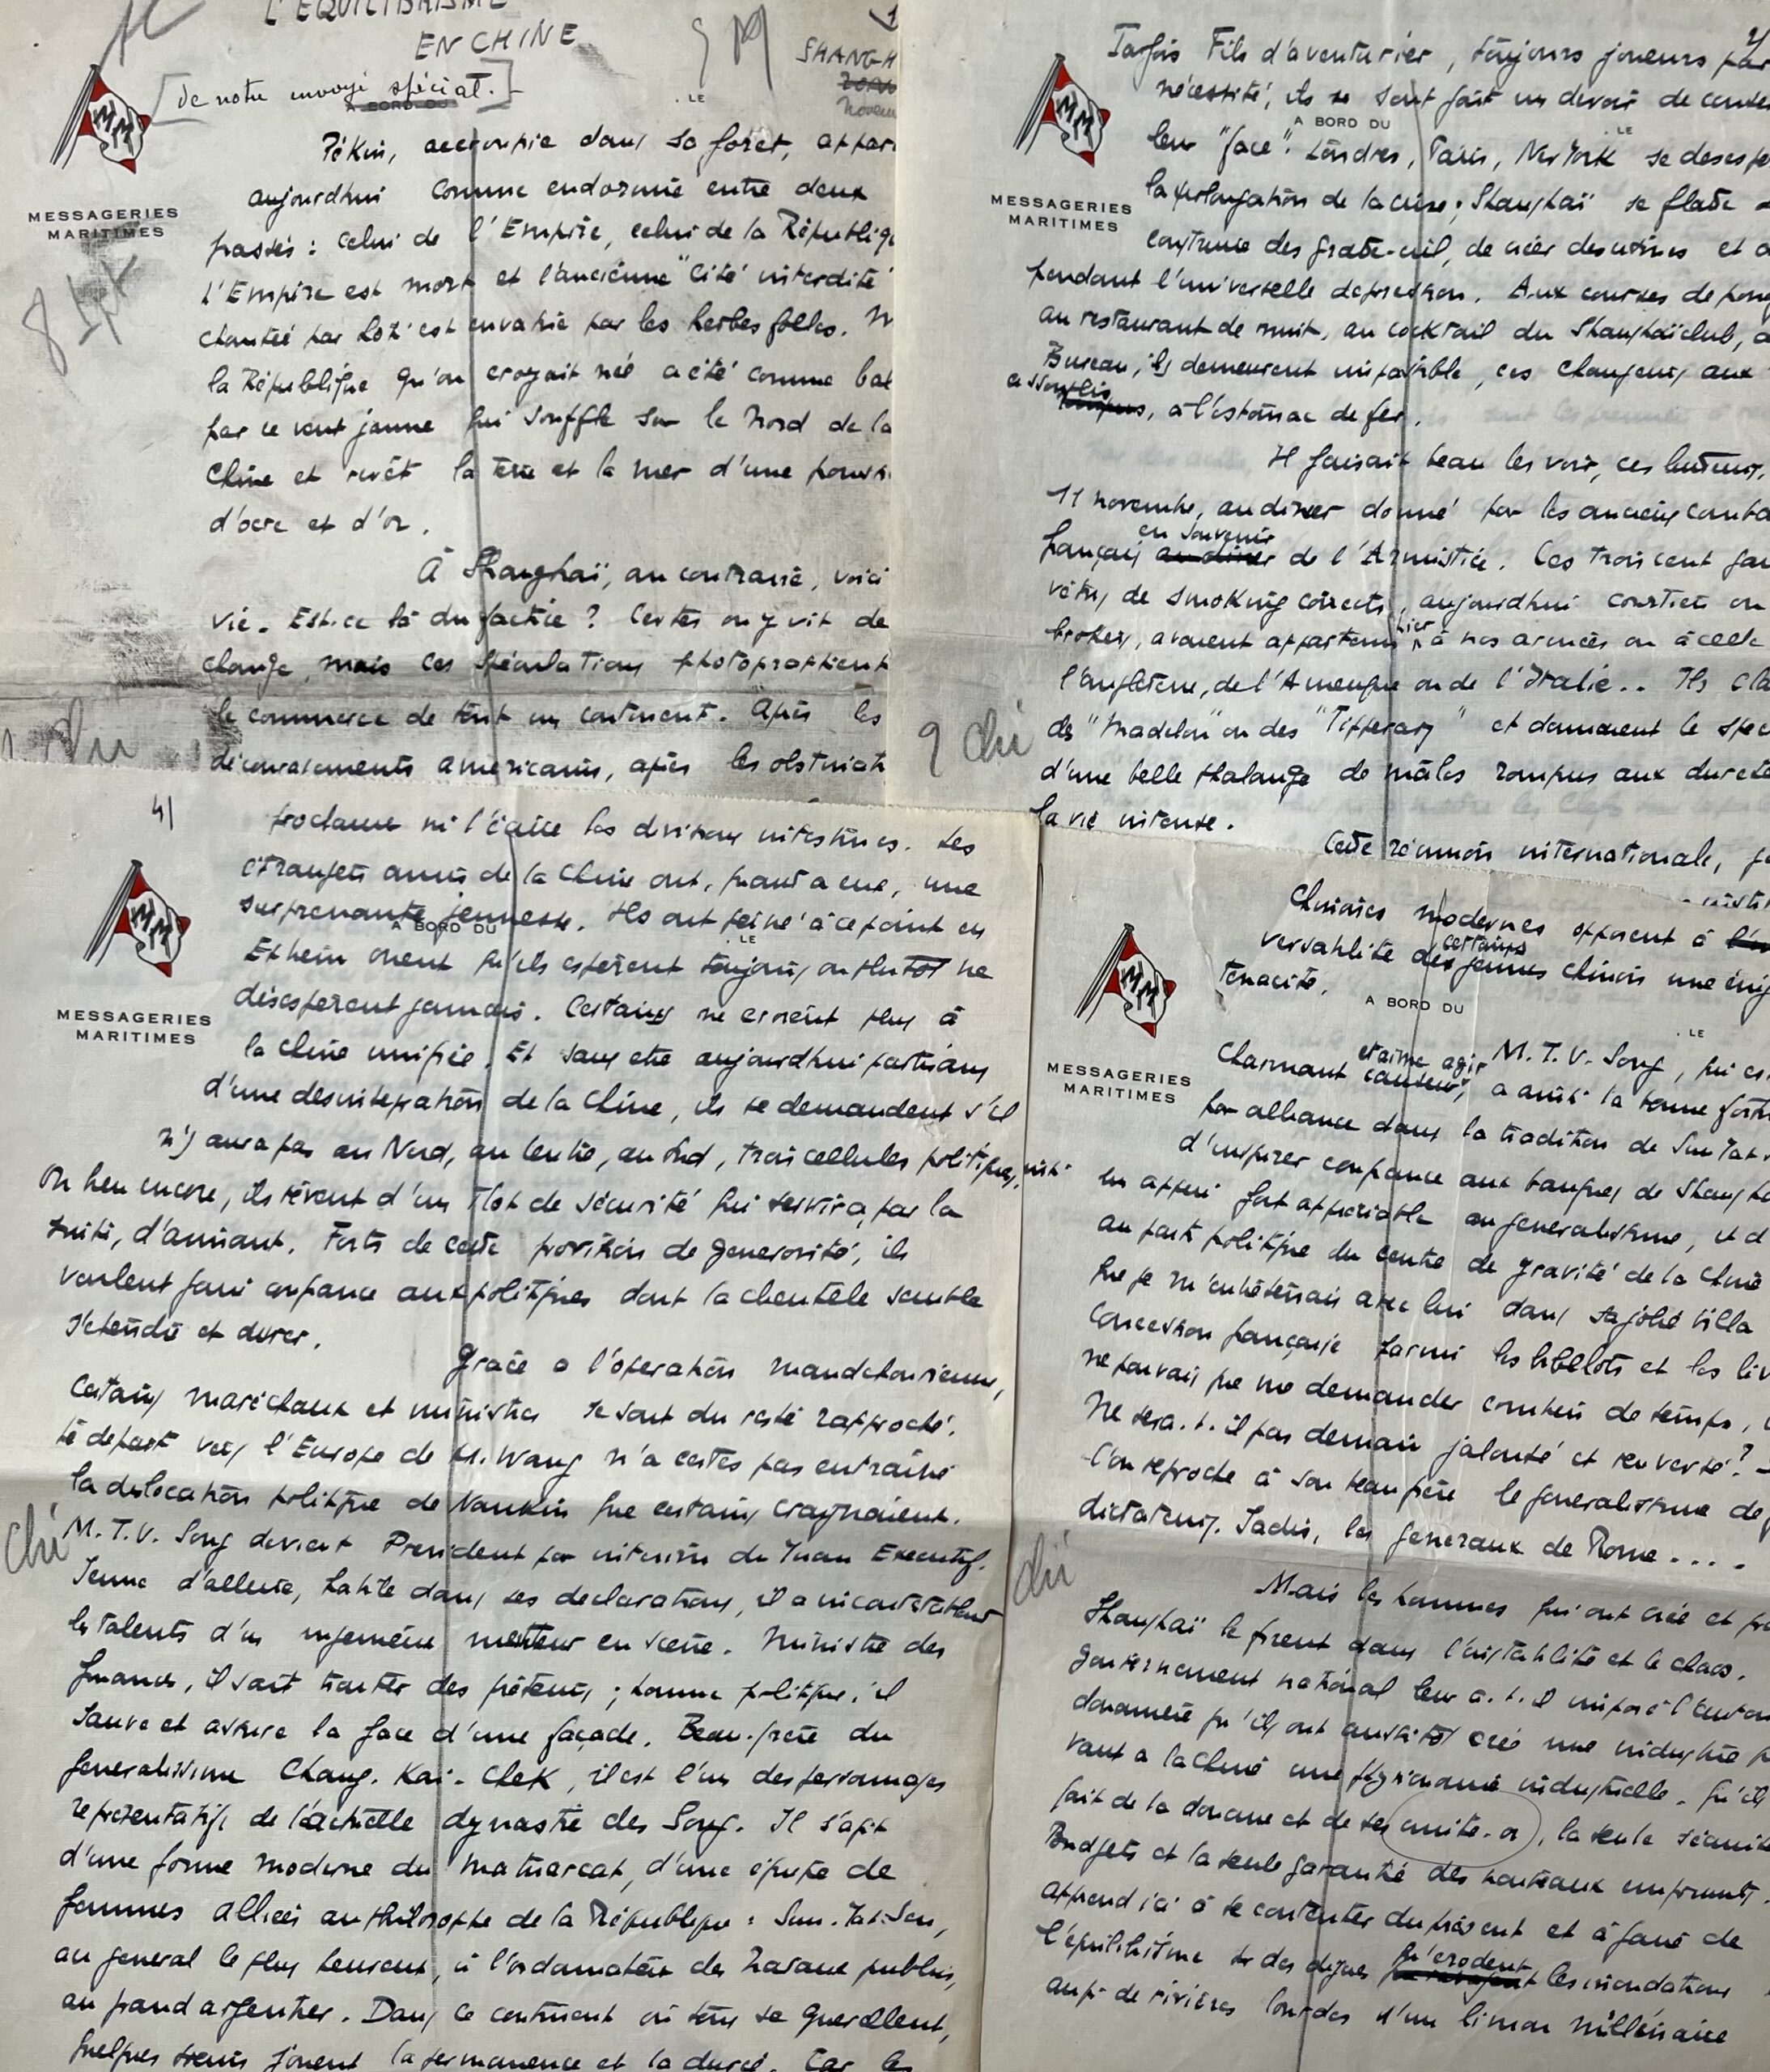 L'EQUILIBRISME
EN CHINE
[de notre envoyé spécial.]
SHANGH
A BORD DU
LE
MESSAGERIES
MARITIMES
8
Pékin, accroupie dans sa forêt,
aujourdhui comme endormie entre deux
passés : celui de l'Empire, celui de la Républiq
L'Empire est mort et l'ancienne "Cité interdite
chantée par Loti est envahie par les herbes folles.
la République qu'on croyait
par ce vent jaune qui souffle sur le Nord de la
Chine et revêt la terre et la mer d'une
d'ocre et d'or.
A Shanghaï, au contraire, voici
vie. Est-ce là du factice ? Certes on y vit de
change, mais ces spéculations
le commerce de tout un continent. Après les
américains, après les
2/
Parfois Fils d'aventurier, toujours joueurs par
nécessité, ils se sont fait un devoir de
A BORD DU
LE
leur "face". Londres, Paris, New York se
MESSAGERIES
MARITIMES
la prolongation de la crise ; Shanghaï se flatte
construire des gratte-ciel, de créer des usines et
pendant l'universelle dépression. Aux courses de
au restaurant de nuit, au cocktail du Shanghaïclub,
Bureau, ils demeurent impassible, ces changeurs aux
, à l'estomac de fer.
Il faisait beau les voir, ces lutteurs,
11 novembre, au diner donné par les anciens
en souvenir
français au diner de l'Armistice. Ces trois cent
vêtus de smoking corrects, aujourdhui courtiers ou
brokers, avaient appartenu hier à nos armées ou à celle
l'angleterre, de l'Amerique ou de l'Italie..
des "Madelon" ou des "Tipperary" et donnaient le
d'une belle phalange de mâles rompus aux
la vie intense.
Cette réunion internationale,
9 chi
4/
proclame ni l'écaille les divisions intestines. Les
étrangers amis de la Chine ont, quant a eux, une
surprenante jeunesse. Ils ont peiné à ce point en
A BORD DU
LE
Extrem orient qu'ils espèrent toujours ou plutot ne
désespèrent jamais. Certains ne croient plus à
MESSAGERIES
MARITIMES
la Chine unifiée. Et sans etre aujourdhui partisans
d'une désintégration de la Chine, ils se demandent s'il
n'y aura pas au Nord, au Centre, au Sud, trois cellules politiques,
Ou bien encore, ils rêvent d'un îlot de sécurité qui servira, par la
suite, d'aimant. Forts de cette provision de générosité, ils
veulent faire confiance aux politiques dont la clientèle semble
s'étendre et durer.
Grace a l'opération mandchourienne,
certains maréchaux et ministres se sont du reste rapproché.
Le départ vers l'Europe de M. Wang n'a certes pas entraîné
la dislocation politique de Nankin que certains craignaient.
M. T. V. Song devient President par interim du Yuan Executif.
Jeune d'allure, habile dans ses déclarations, il a incontestablement
les talents d'un ingénieux metteur en scène. Ministre des
finances, il sait traiter des prêteurs ; homme politique, il
sauve et assure la face d'une façade. Beau-frère du
generalissime Chang-Kai-Chek, il est l'un des personnages
représentatifs de l'actuelle dynastie des Song. Il s'agit
d'une forme moderne du matriarcat, d'une équipe de
femmes alliées au Philosophe de la République : Sun-Yat-Sen,
au general le plus heureux, à l'ordonnateur des travaux publics,
au grand argentier. Dans ce continent où tous se querellent,
quelques jouent la permanence et la durée. Car les
chi
Chinoises modernes opposent à
certains
versatilité des jeunes chinois une
ténacité.
A BORD DU
LE
MESSAGERIES
MARITIMES
et aime agir
Charmant causeur, M. T. V. Song, qui
a aussi la bonne
par alliance dans la tradition de Sun Yat
d'inspirer confiance aux banques de
un appui fort appréciable au generalissime, et
au parti politique du centre de gravité de la Chine
que je m'entretenais avec lui dans sa jolie villa
Concession française parmi les bibelots et les
ne pouvais que me demander combien de temps,
Ne sera-t-il pas demain jalousé et renversé ?
l'on reproche à son beau frère le generalissime de
dictateurs. Jadis, les généraux de Rome....
Mais les hommes qui ont créé et
Shanghaï le firent dans l'instabilité et le chaos.
gouvernement national leur a-t-il imposé
douanière qu'ils ont aussitot créé une industrie
vaut a la Chine une physionomie industrielle.
fait de la douane et de ses unité-or, la seule sécurité
Budgets et la seule garantie des nouveaux emprunts.
apprend ici à se contenter du présent et à faire de
l'équilibrisme sur des digues qu'erodent les inondations
de rivières lourdes d'un limon millénaire
chi